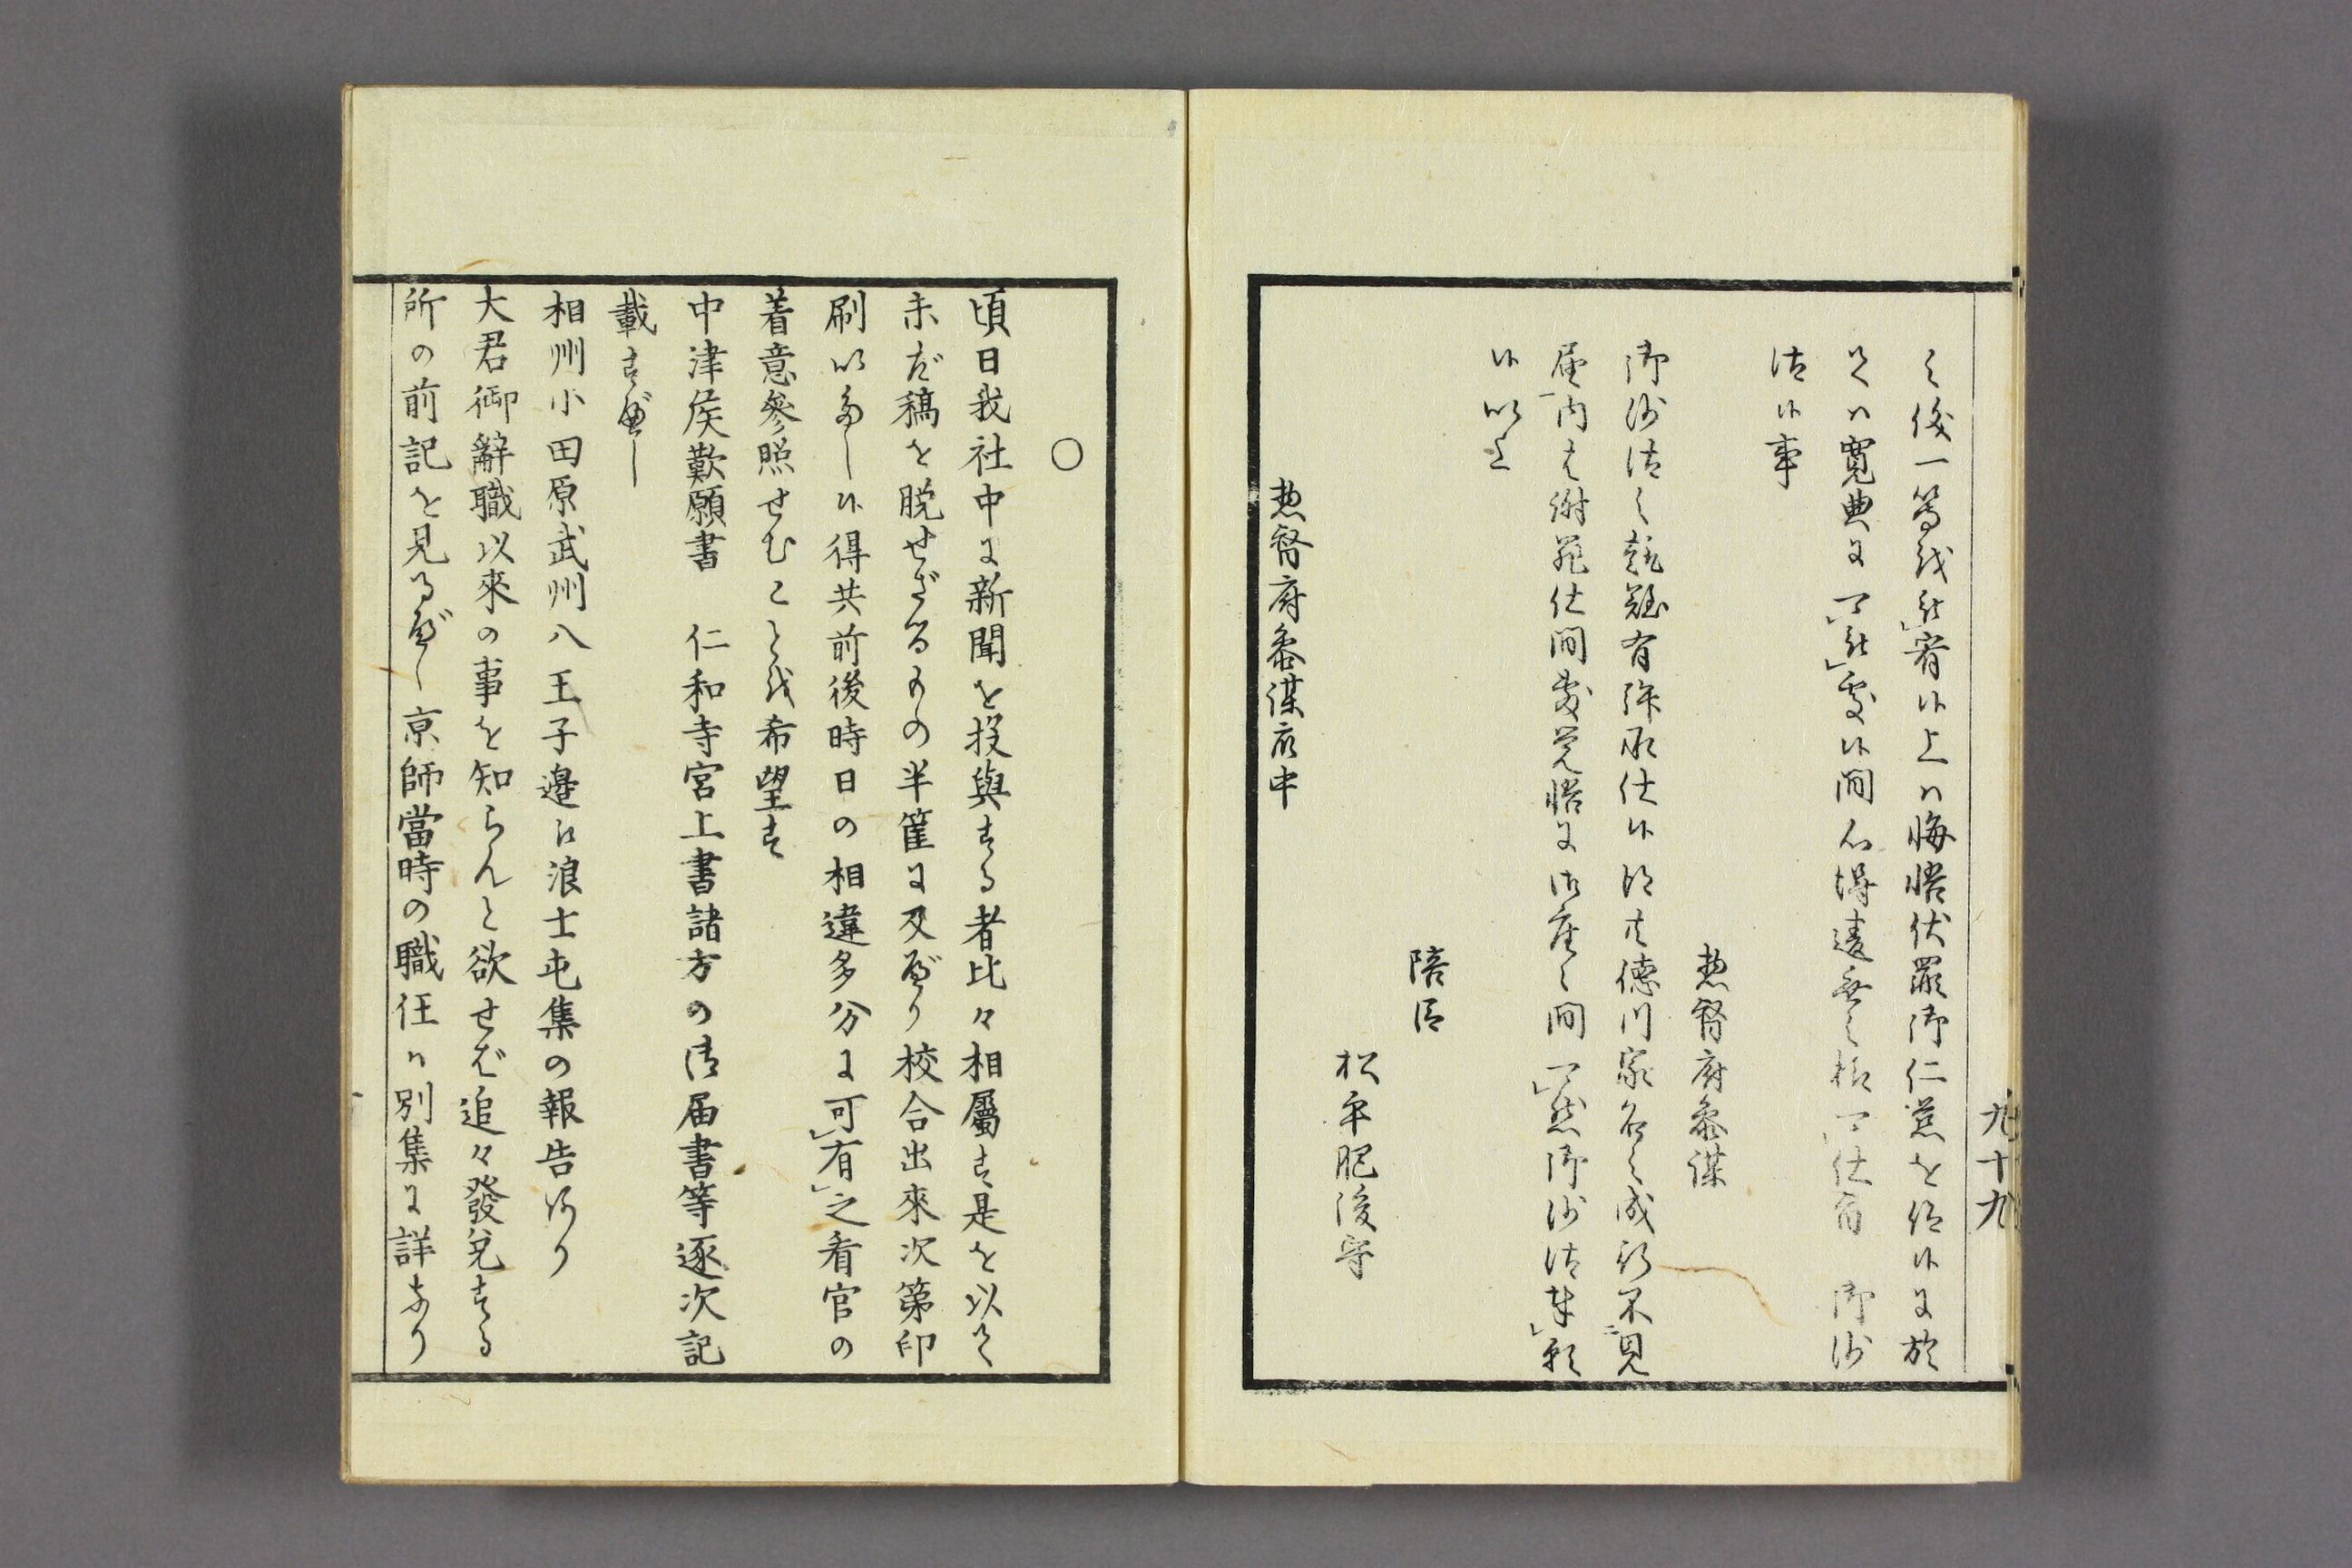 九十九
之後一等を被宥候上は悔悟伏罪御仁慈を仰候に於
ては寛典に可被處候間心得違無之様可仕旨 御沙
汰候事
惣督府参謀
御沙汰之趣難有拝承仕候得共徳川家名之成行不見
届内は謝罪仕間敷覚悟に御座候間可然御沙汰奉願
候以上
陪臣
松平肥後守
惣督府参謀衆中
○
頃日我社中に新聞を投與する者比々相屬す是を以て
未だ稿を脱せざるもの半筐に及べり校合出來次第印
刷いたし候得共前後時日の相違多分に可有之看官の
着意參照せむことを希望す
中津侯歎願書 仁和寺宮上書諸方の御届書等逐次記
載すべし
相州小田原武州八王子邉に浪士屯集の報告あり
大君御辭職以來の事を知らんと欲せば追々發兌する
所の前記を見るべし京師當時の職任は別集に詳なり